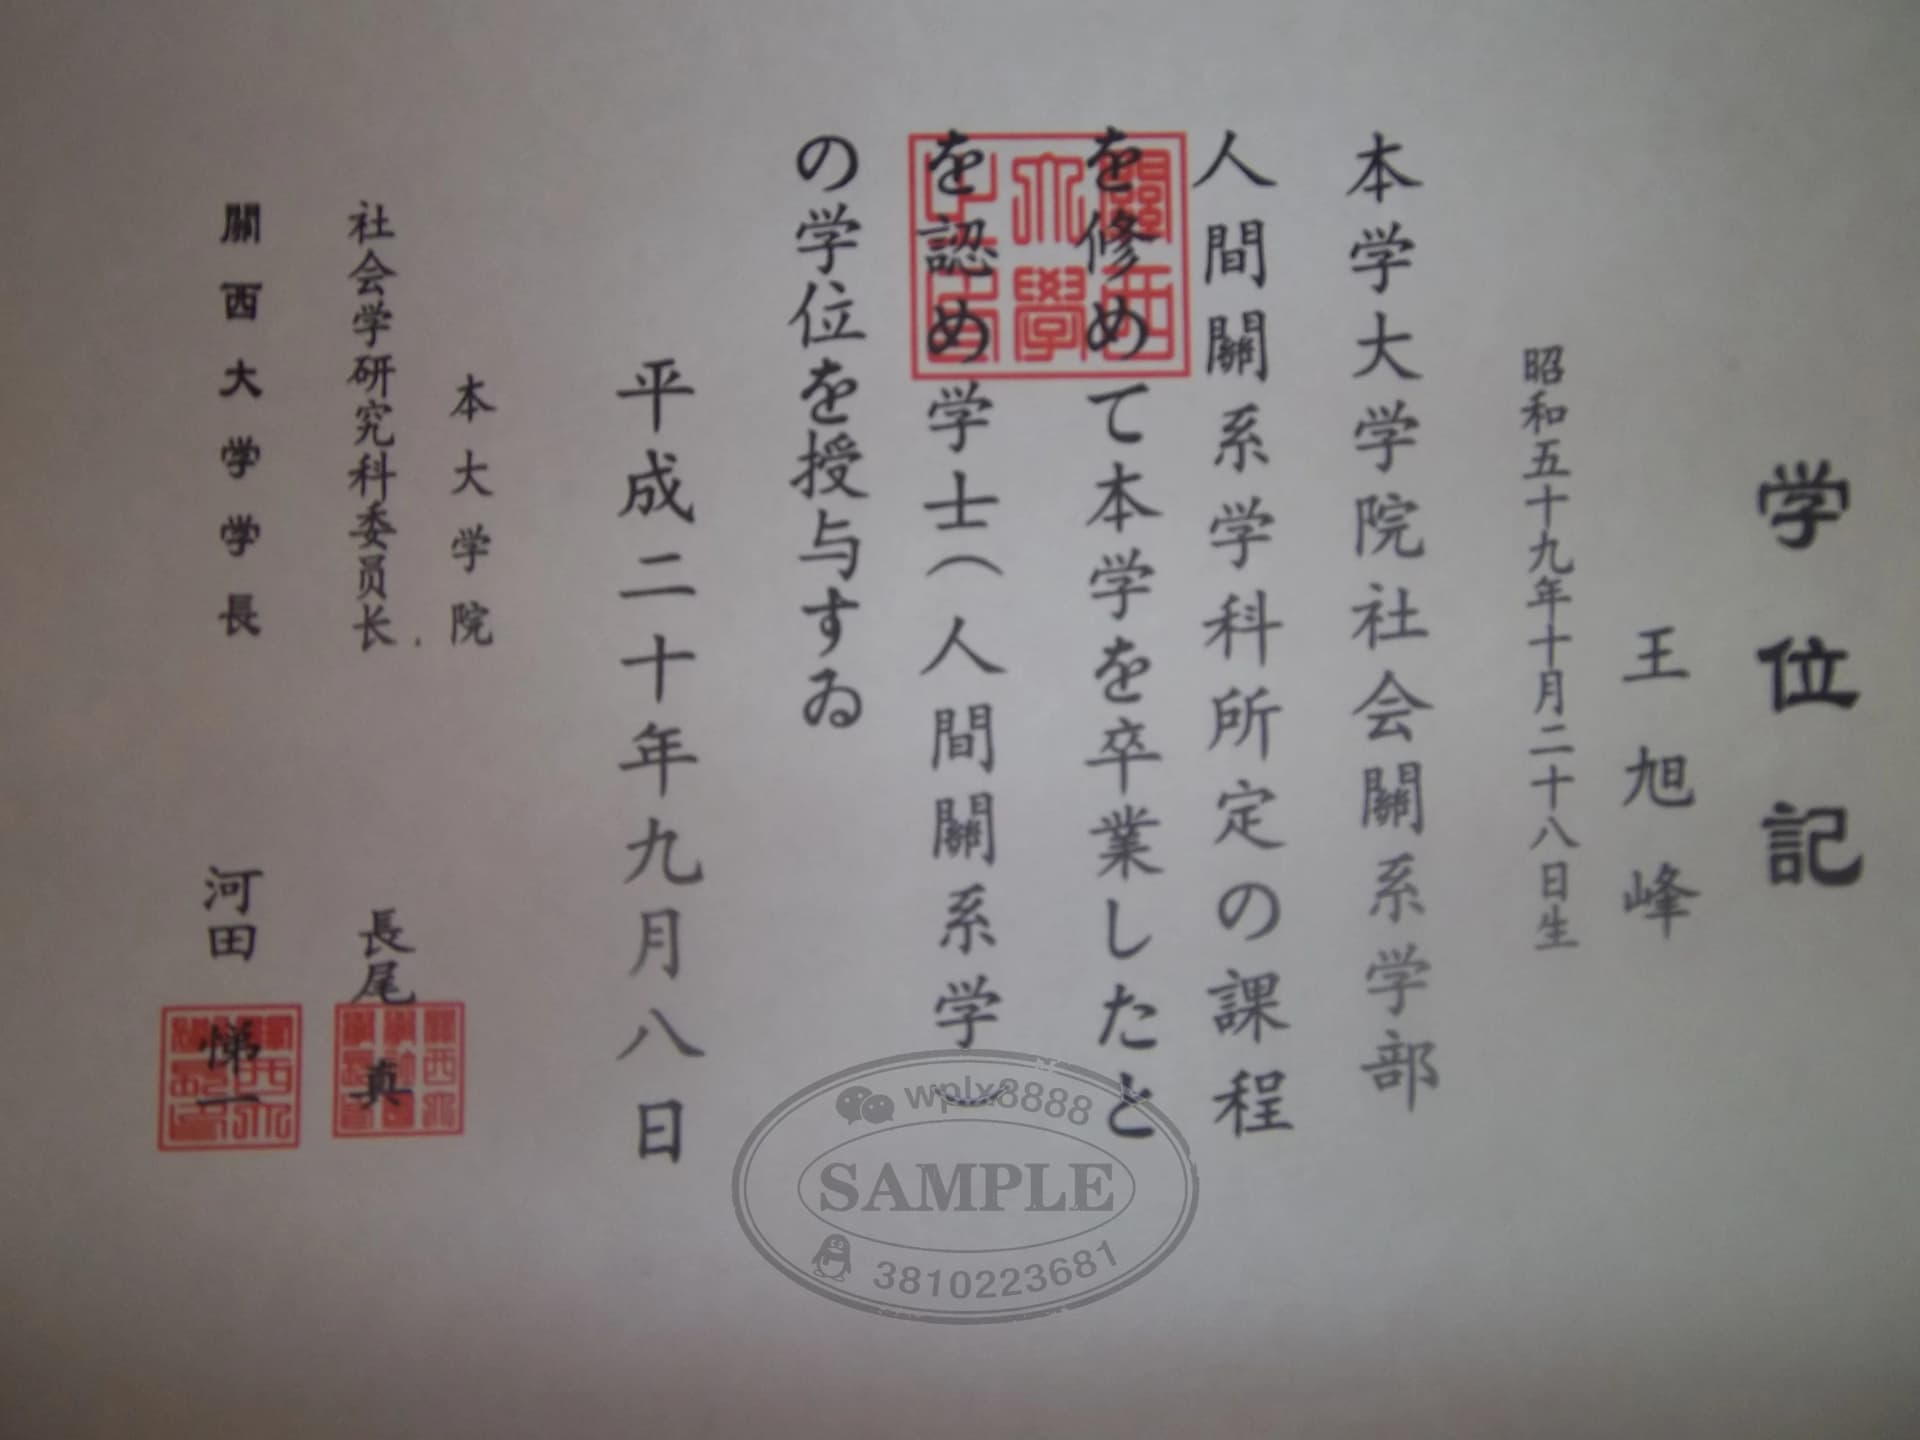 学位記
王旭峰
昭和五十九年十月二十八日生
本学大学院社会關系学部
人間關系学科所定の課程
を修めて本学を卒業したと
を認め学士(人間關系学)
の学位を授与すゐ
平成二十年九月八日
本大学院
社会学研究科委员长 長尾真
關西大学学長 河田悌一
關西
大學
wplx8888
SAMPLE
3810223681